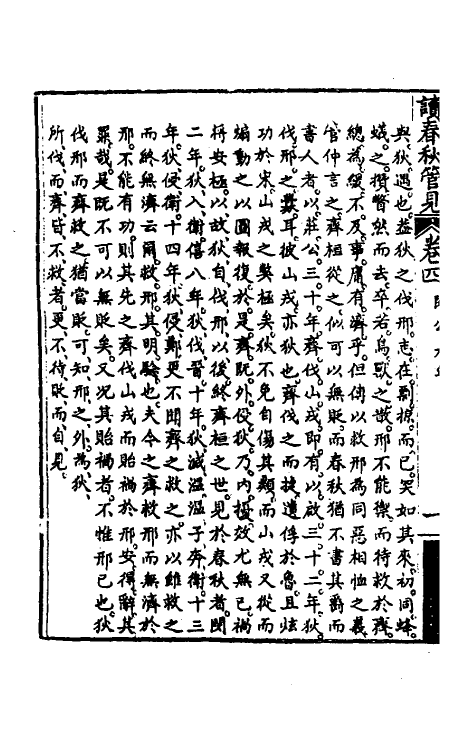 讀春秋管見 卷四 閔公 元年 一
與狄遇也蓋狄之伐邢志在剽掠而已矣如其來初同蜂
蟻之攢瞥然而去卒若鳥獸之散邢不能禦而待救於齊
總為緩不及事庸有濟乎但傳以救邢為同惡相恤之義
管仲言之齊桓從之似可以無貶而春秋猶不書其爵而
書人者以莊公三十年齊伐山戎即有以啟三十二年狄
伐邢之釁耳彼山戎亦狄也齊伐之而捷遺俘於魯且炫
功於宋山戎之獘極矣狄不免自傷其類而山戎又從而
煽動之以圖報復於是齊既外侵狄乃內擾效尤無已禍
構安極以故狄自伐邢以後終齊桓之世見於春秋者閔
二年狄入衛僖八年狄伐晉十年狄滅溫溫子奔衛十三
年狄侵衛十四年狄侵鄭更不聞齊之救之亦以雖救之
而終無濟云爾救邢其明驗也夫令之齊救邢而無濟於
邢不能有功則其先之齊伐山戎而貽禍於邢安得辭其
罪哉是既不可以無貶矣又況其貽禍者不惟邢已也狄
伐邢而齊救之猶當貶可知邢之外為狄
所伐而齊皆不救者更不待貶而自見